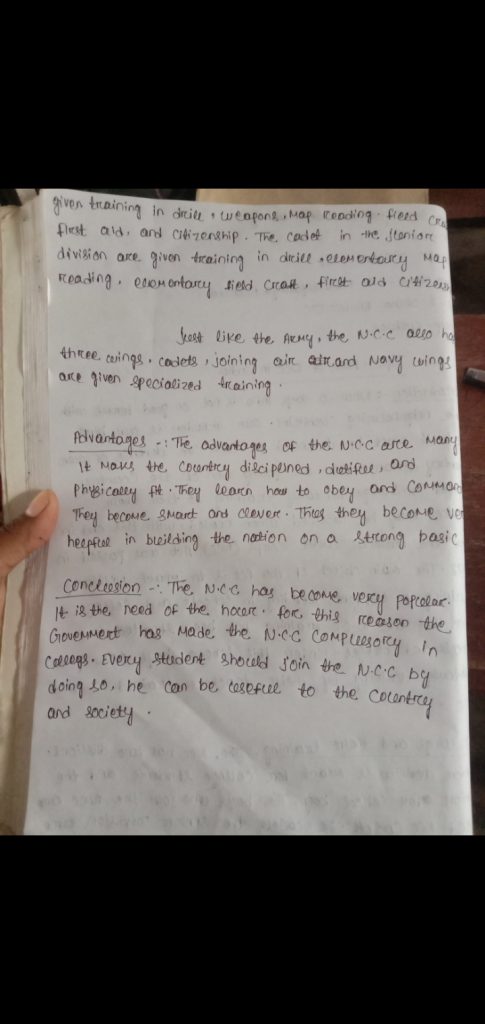 given training in drill, weapons, Map Reading. field
first aid, and Citizenship. The cadet in the
division are given training in drill, elementary Map
reading, elementary field craft, first aid
Just like the Army, the N.C.C also
three wings. cadets, joining air and Navy wings
are given specialized training.
Advantages -: The advantages of the N.C.C are Many
It Maks the Country disciplined, dutiful, and
Physically fit. They learn how to obey and
They become smart and clever. Thus they become
helpful in building the nation on a strong basic
Conclusion -: The N.C.C has become very popular.
It is the need of the hour. for this reason the
Government has Made the N.C.C Compulsory in
Collegs. Every student should join the N.C.C by
doing so, he can be useful to the Country
and society.